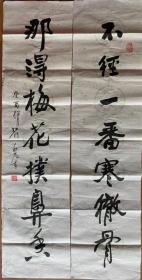 不徑一番寒徹骨
那得梅花撲鼻香